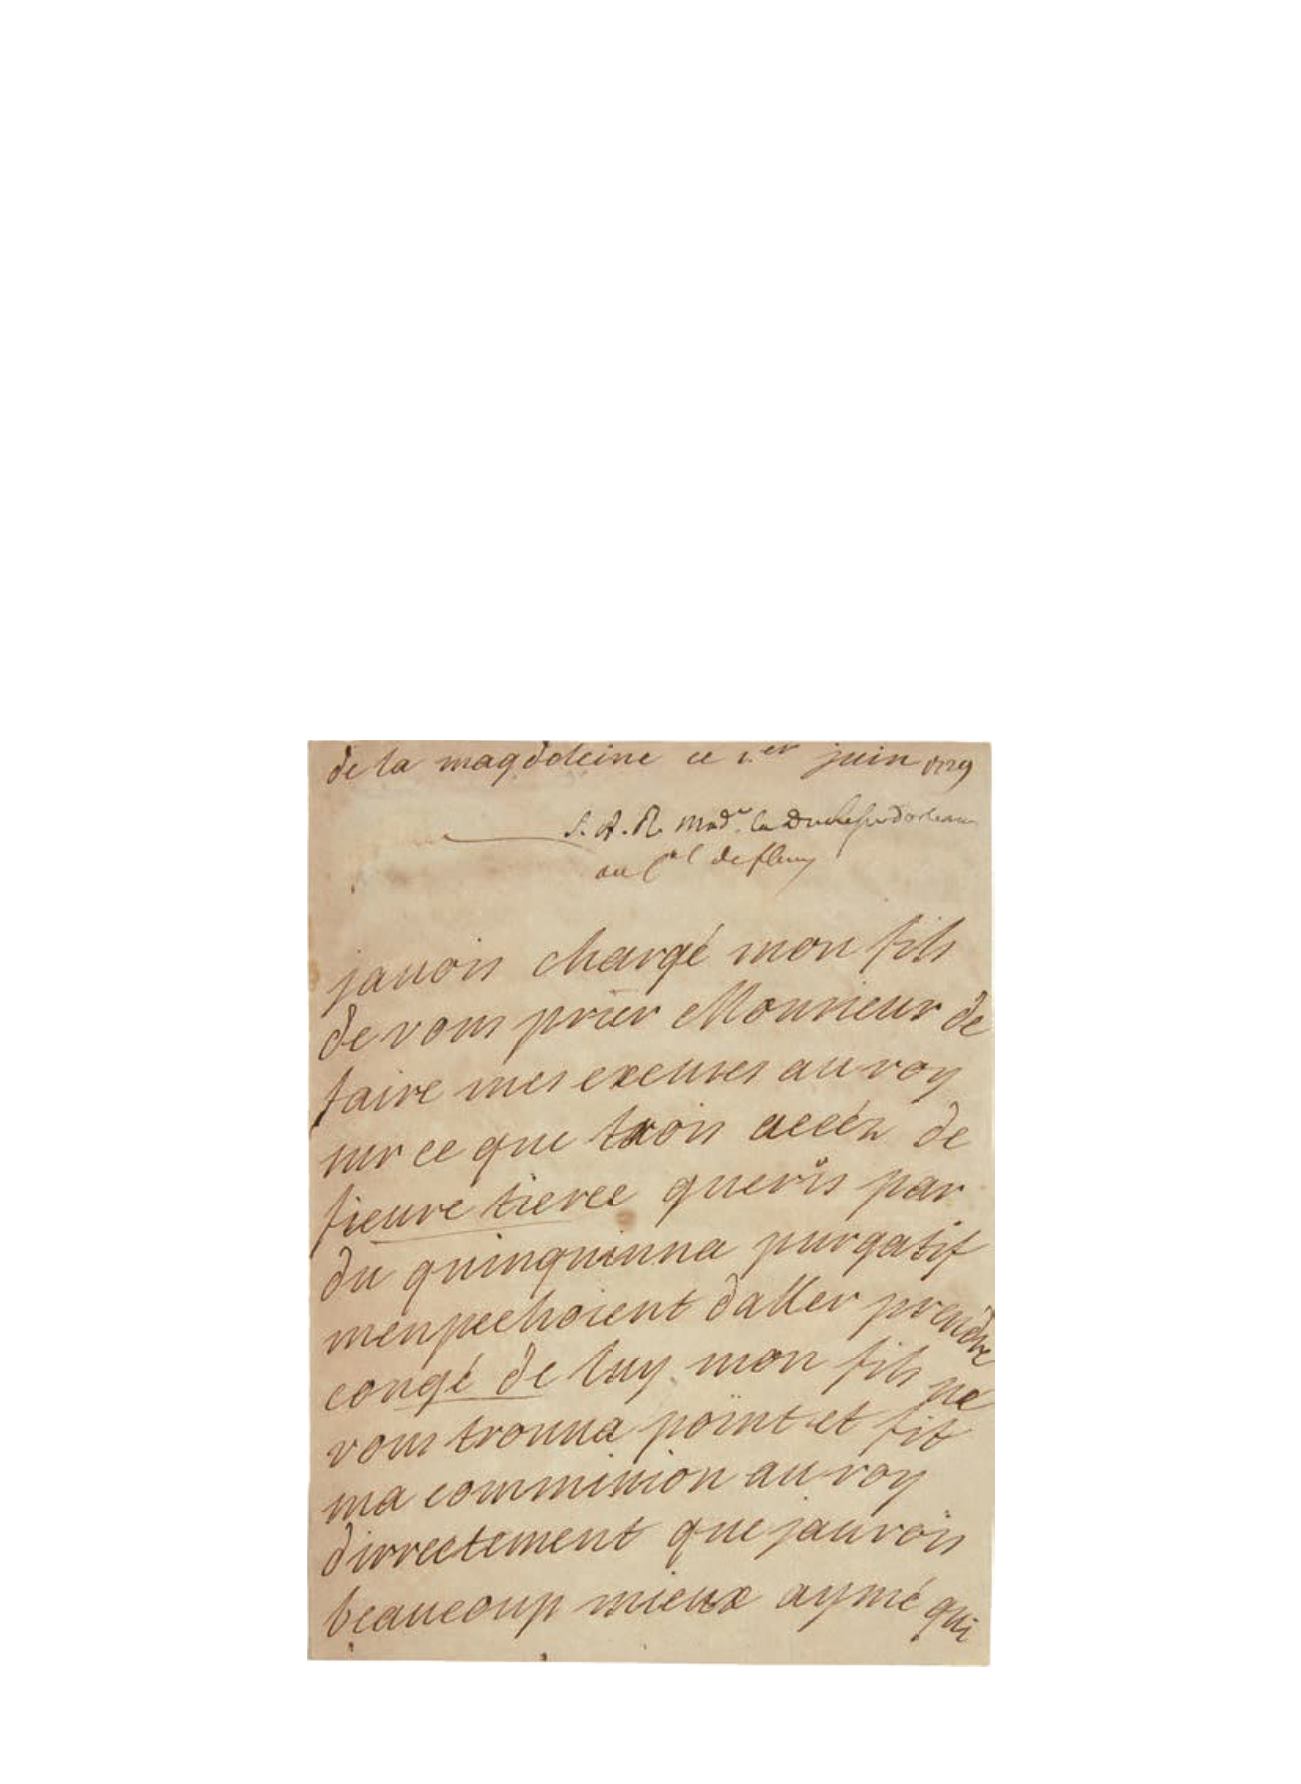 de la magdeleine ce 1.er juin 1729
S. A. R. Mad.e la Duchesse d'orleans
au C.al de fleury
jauois chargé mon fils
de vous prier Monsieur de
faire mes excuses au roy
sur ce que trois accéz de
fieure tierce queris par
du quinquinna purgatif
menpechoient daller prendre
congé de luy mon fils ne
vous trouua point et fit
ma commission au roy
dirrectement que jaurois
beaucoup mieux aymé qui